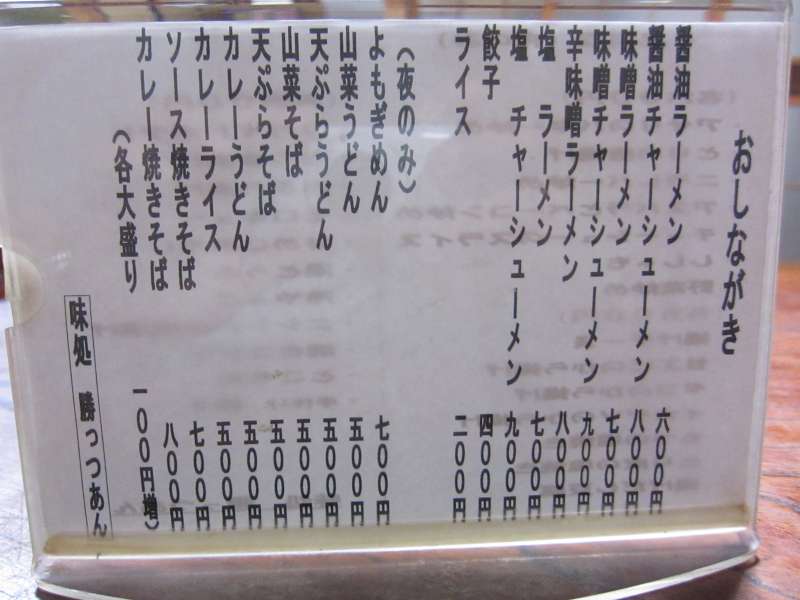 おしながき
醤油ラーメン 六00円
醤油チャーシューメン 八00円
味噌ラーメン 七00円
味噌チャーシューメン 九00円
辛味噌ラーメン 八00円
塩 ラーメン 七00円
塩 チャーシューメン 九00円
餃子 四00円
ライス 二00円
(夜のみ)
よもぎめん 七00円
山菜うどん 五00円
天ぷらうどん 五00円
山菜そば 五00円
天ぷらそば 五00円
カレーうどん 五00円
カレーライス 五00円
ソース焼きそば 七00円
カレー焼きそば 八00円
(各大盛り 一00円増)
味処 勝っつあん